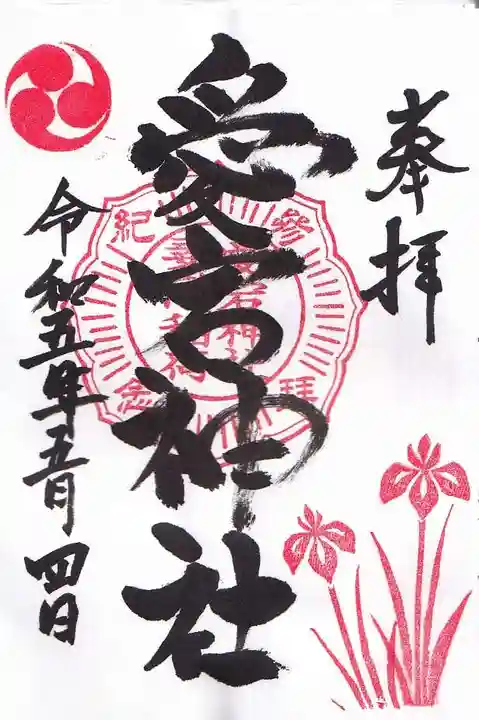 奉拝
愛宕神社
令和五年五月四日
參拜
紀念